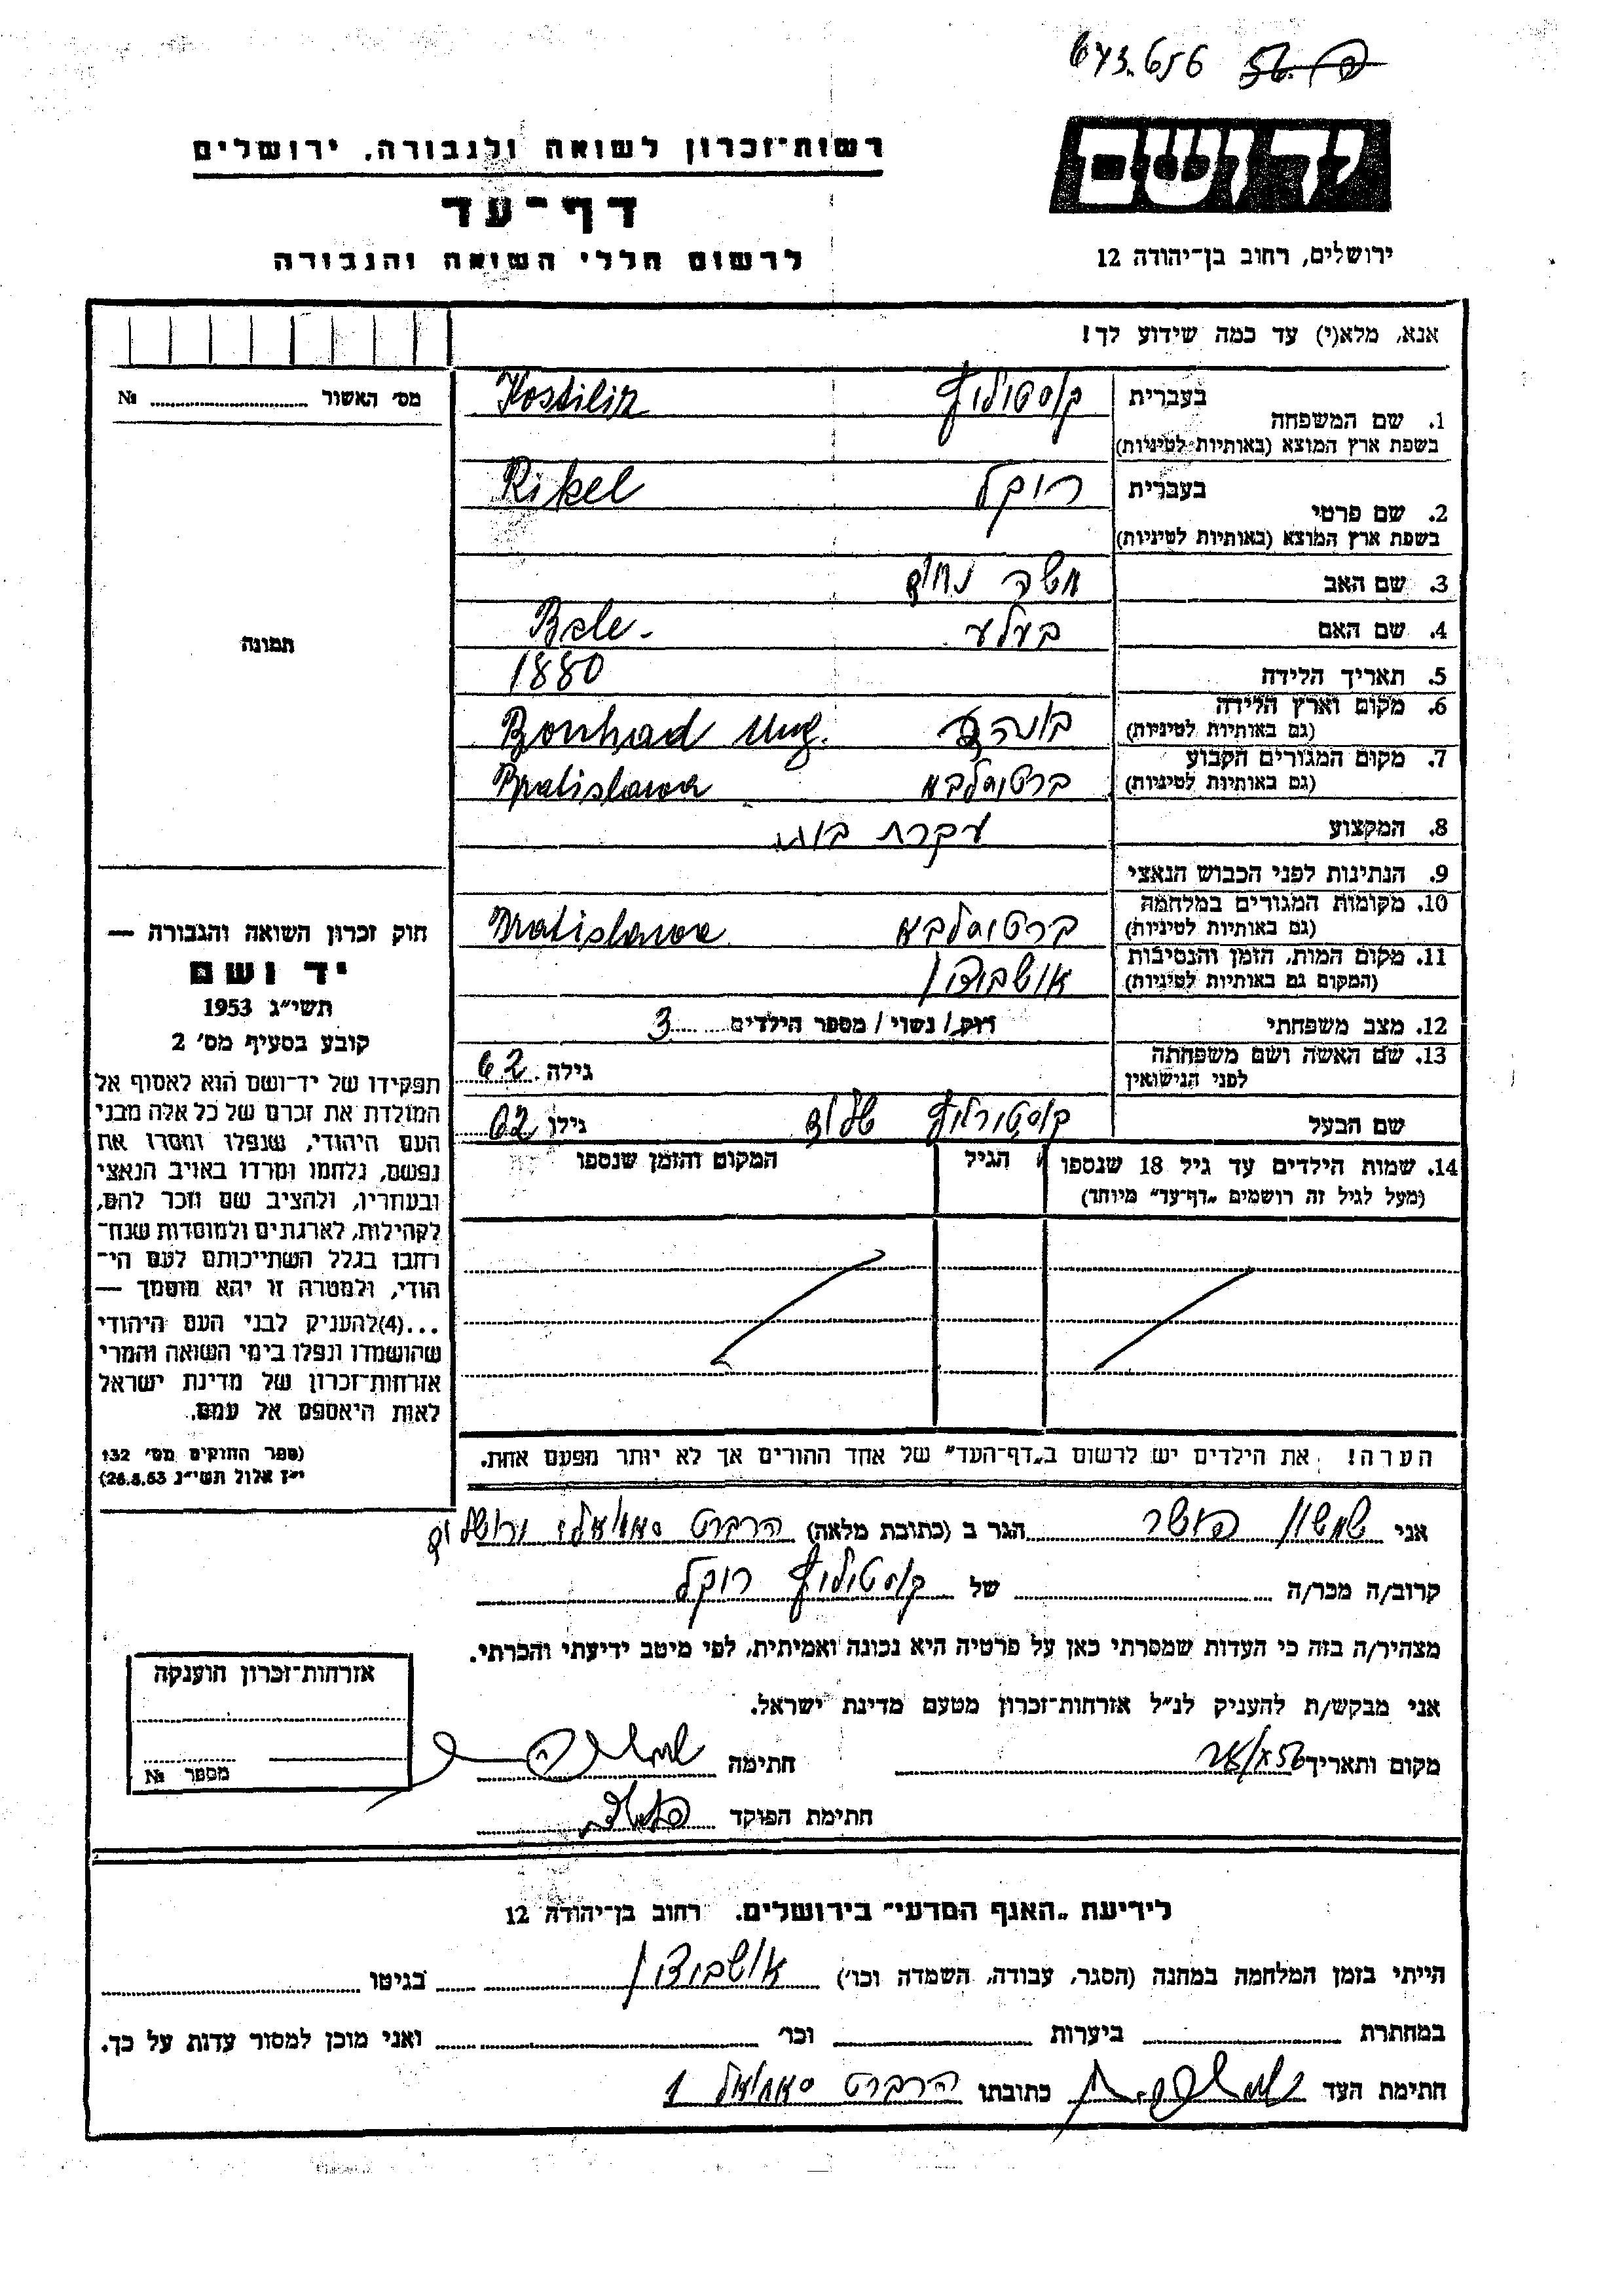 673.656
רשות־זכרון לשואה ולגבורה, ירושלים
יד ושם
דף־עד
לרשום חללי השואה והגבורה
ירושלים, רחוב בן־יהודה 12
אנא, מלא(י) עד כמה שידוע לך!
מס׳ האשור № 
1. שם המשפחה
בעברית
בשפת ארץ המוצא (באותיות לטיניות)
2. שם פרטי
בעברית Rikel
בשפת ארץ המוצא (באותיות לטיניות)
3. שם האב משה
4. שם האם בעלע Bele.
5. תאריך הלידה 1880
6. מקום וארץ הלידה Bonhad Ung.
(גם באותיות לטיניות)
7. מקום המגורים הקבוע Bratislava
(גם באותיות לטיניות)
8. המקצוע עקרת בית
9. הנתינות לפני הכבוש הנאצי
10. מקומות המגורים במלחמה Bratislava
(גם באותיות לטיניות)
11. מקום המות, הזמן והנסיבות
(המקום גם באותיות לטיניות)
12. מצב משפחתי רווק / נשוי / מספר הילדים 3
13. שם האשה ושם משפחתה גילה 62
לפני הנישואין
שם הבעל גילו 62
14. שמות הילדים עד גיל 18 שנספו הגיל המקום והזמן שנספו
(מעל לגיל זה רושמים „דף־עד״ מיוחד)
תמונה
חוק זכרון השואה והגבורה —
יד ושם
תשי״ג 1953
קובע בסעיף מס׳ 2
תפקידו של יד־ושם הוא לאסוף אל
המולדת את זכרם של כל אלה מבני
העם היהודי, שנפלו ומסרו את
נפשם, נלחמו ומרדו באויב הנאצי
ובעוזריו, ולהציב שם וזכר להם,
לקהילות, לארגונים ולמוסדות שנח־
רבו בגלל השתייכותם לעם הי־
הודי, ולמטרה זו יהא מוסמך —
...(4)להעניק לבני העם היהודי
שהושמדו ונפלו בימי השואה והמרי
אזרחות־זכרון של מדינת ישראל
לאות היאספם אל עמם.
(ספר החוקים מס׳ 132
י״ז אלול תשי״ג 26.8.53)
הערה! את הילדים יש לרשום ב„דף־העד״ של אחד ההורים אך לא יותר מפעם אחת.
אני שמשון הגר ב (כתובת מלאה) הרברט
קרוב/ה מכר/ה של
מצהיר/ה בזה כי העדות שמסרתי כאן על פרטיה היא נכונה ואמיתית, לפי מיטב ידיעתי והכרתי.
אני מבקש/ת להעניק לנ״ל אזרחות־זכרון מטעם מדינת ישראל.
מקום ותאריך חתימה
חתימת הפוקד
אזרחות־זכרון הוענקה
מספר №
לידיעת „האגף המדעי״ בירושלים. רחוב בן־יהודה 12
הייתי בזמן המלחמה במחנה (הסגר, עבודה, השמדה וכו׳) בגיטו
במחתרת ביערות וכו׳ ואני מוכן למסור עדות על כך.
חתימת העד כתובתו הרברט סמואל 1